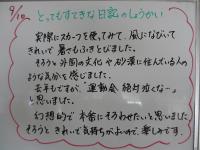 9/10 とってもすてきな日記のしょうかい
実際にスカーフを使ってみて、風になびいて
きれいで暑さもふきとびました。
そうすると外国の文化や砂漠に住んでいる人の
ような気分を感じました。
苦手もですが、「運動会 絶対泣くなー」
と思いました。
幻想的で本番にそろわせたいと思いました。
そろうときれいで気持ちがよいので、楽しみです。